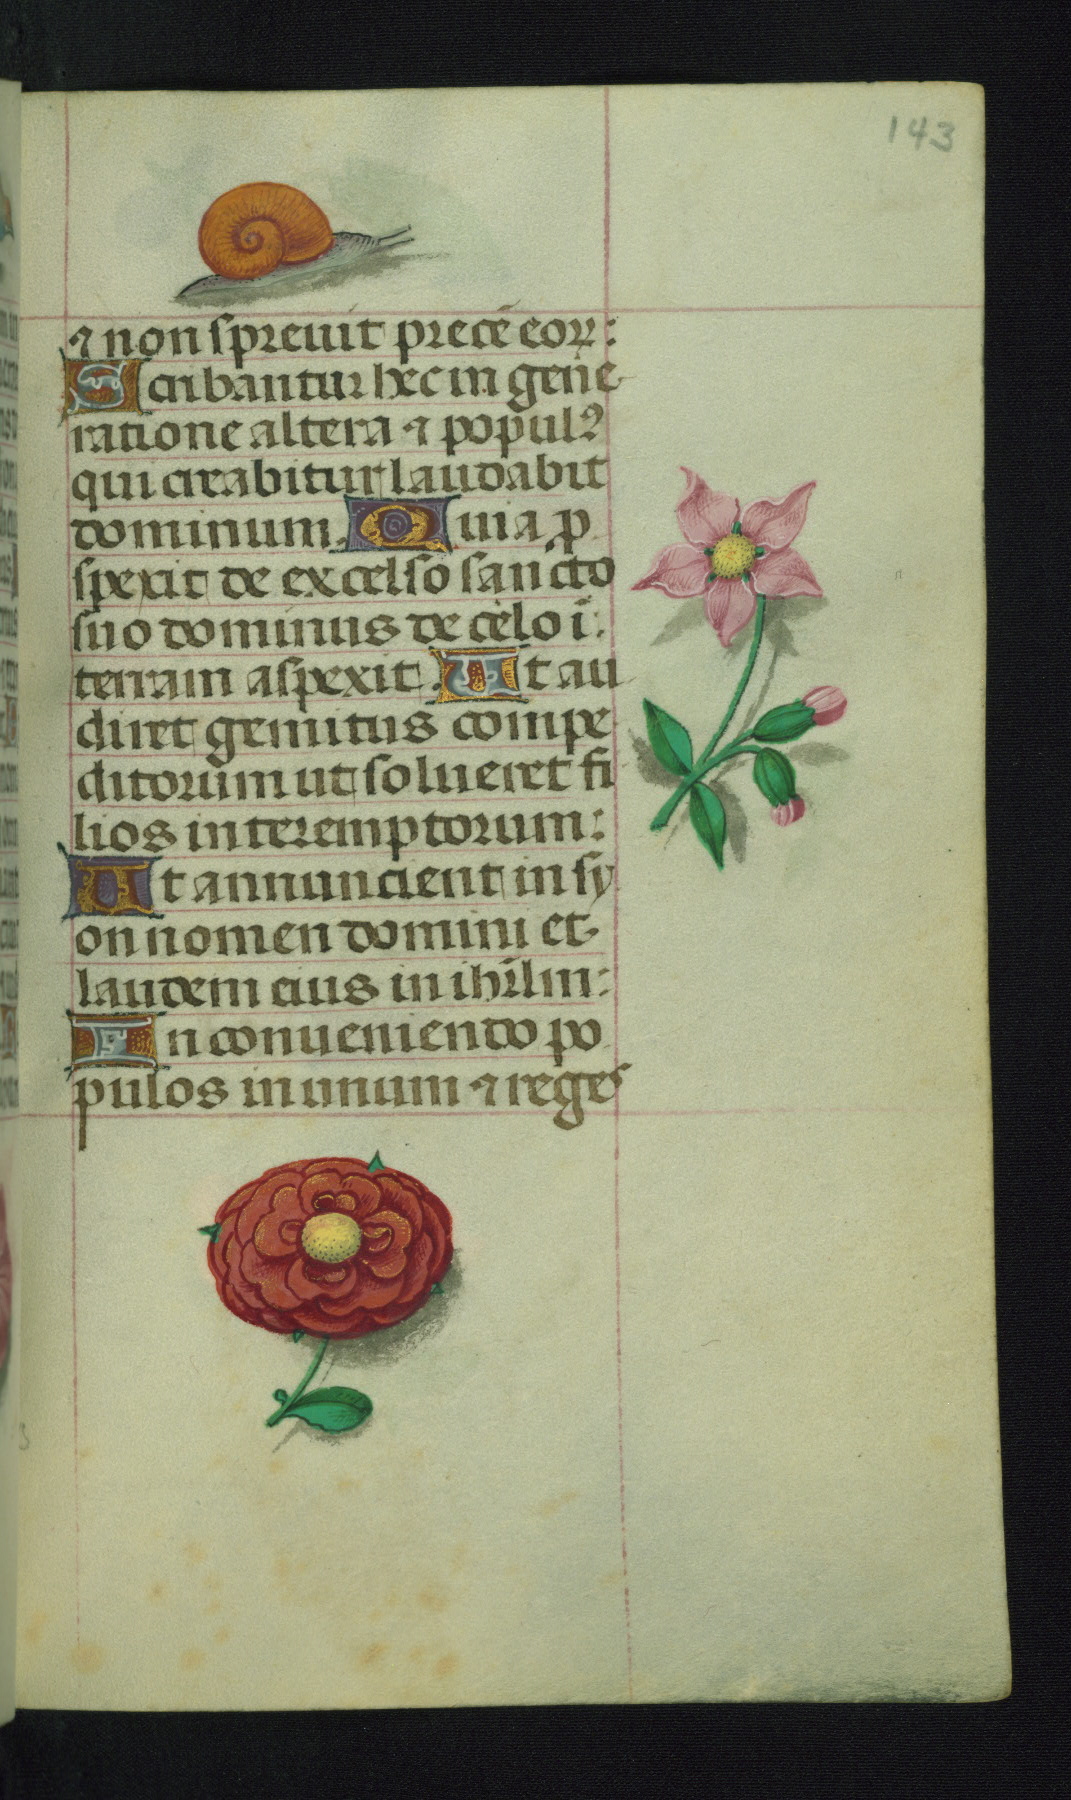 143
⁊ non spreuit precē eoꝝ:
Scribantur hec in gene
ratione altera ⁊ populꝰ
qui creabitur laudabit
dominum. Quia ꝓ
spexit de excelso sancto
suo dominus de celo ī:
terram aspexit. Ut au
diret gemitus compe
ditorum ut solueret fi
lios interemptorum:
Ut annuncient in sy
on nomen domini et
laudem eius in ihrl̄m:
In conueniendo po
pulos in unum ⁊ reges